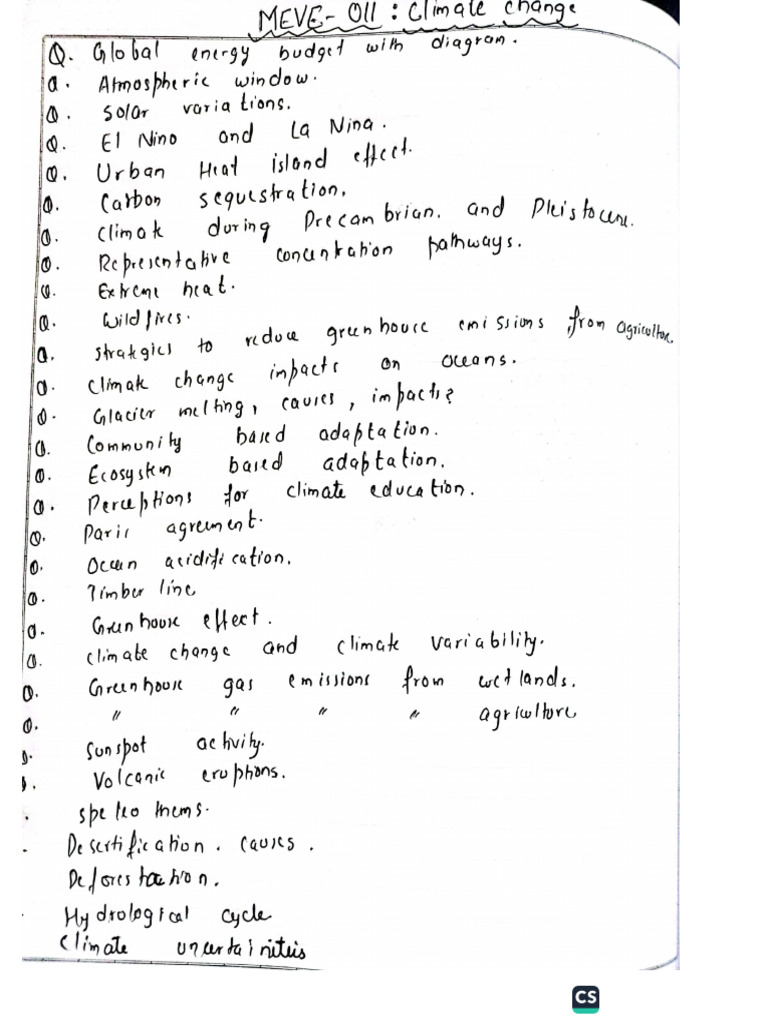 MEVE-011 : Climate change
Q. Global energy budget with diagram.
Q. Atmospheric window.
Q. Solar variations.
Q. El Nino and La Nina.
Q. Urban Heat island effect.
Q. Carbon sequestration.
Q. Climate during Precambrian. and Pleistocene.
Q. Representative concentration pathways.
Q. Extreme heat.
Q. Wildfires.
Q. Strategies to reduce greenhouse emissions from agriculture.
Q. Climate change impacts on oceans.
Q. Glacier melting, causes, impacts?
Q. Community based adaptation.
Q. Ecosystem based adaptation.
Q. Perceptions for climate education.
Q. Paris agreement.
Q. Ocean acidification.
Q. Timber line
Q. Greenhouse effect.
Q. Climate change and climate variability.
Q. Greenhouse gas emissions from wetlands.
Q. " " " " agriculture
Q. Sunspot activity.
Q. Volcanic eruptions.
Speleothems.
Desertification. causes.
Deforestation.
Hydrological cycle
Climate uncertainiteis
CS